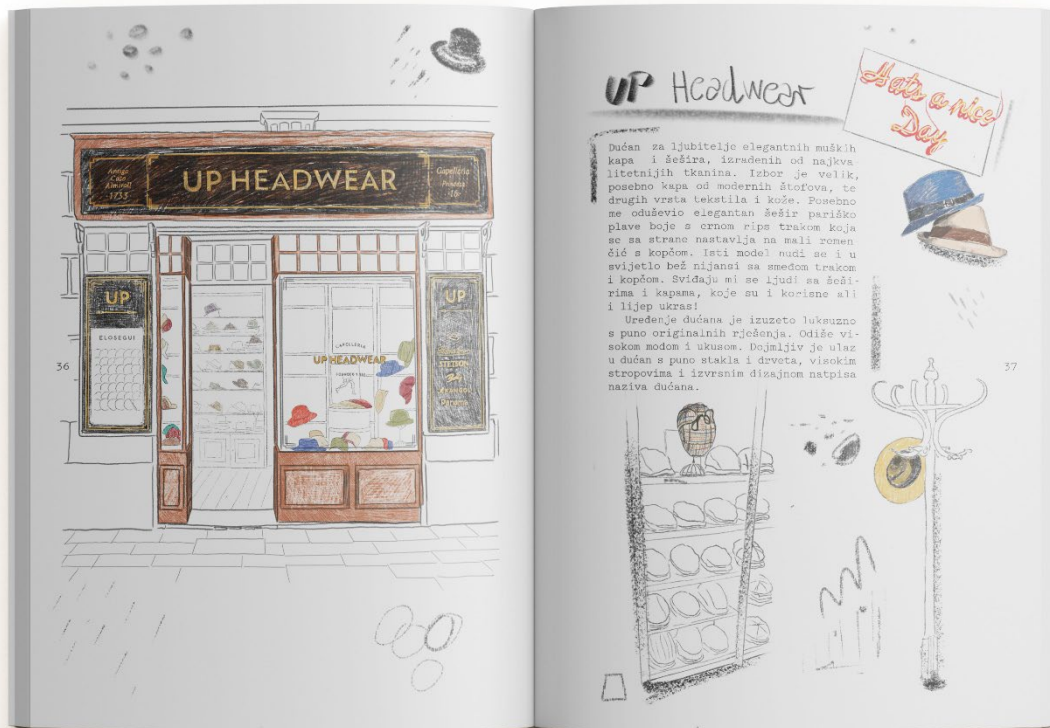 Antiga
Casa
1733
UP HEADWEAR
Capelleria
UP
ELOSEGUI
CAPELLERIA
UP HEADWEAR
UP
STETSON
36
UP Headwear
Hats a nice
Day
Dućan za ljubitelje elegantnih muških
kapa i šešira, izrađenih od najkva-
litetnijih tkanina. Izbor je velik,
posebno kapa od modernih štofova, te
drugih vrsta tekstila i kože. Posebno
me oduševio elegantan šešir pariško
plave boje s crnom rips trakom koja
se sa strane nastavlja na mali remen
čić s kopčom. Isti model nudi se i u
svijetlo bež nijansi sa smeđom trakom
i kopčom. Sviđaju mi se ljudi sa šeši-
rima i kapama, koje su i korisne ali
i lijep ukras!
Uređenje dućana je izuzeto luksuzno
s puno originalnih rješenja. Odiše vi-
sokom modom i ukusom. Dojmljiv je ulaz
u dućan s puno stakla i drveta, visokim
stropovima i izvrsnim dizajnom natpisa
naziva dućana.
37